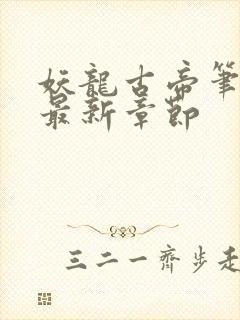 妖龍古帝筆
最新章節
三二一齊步走